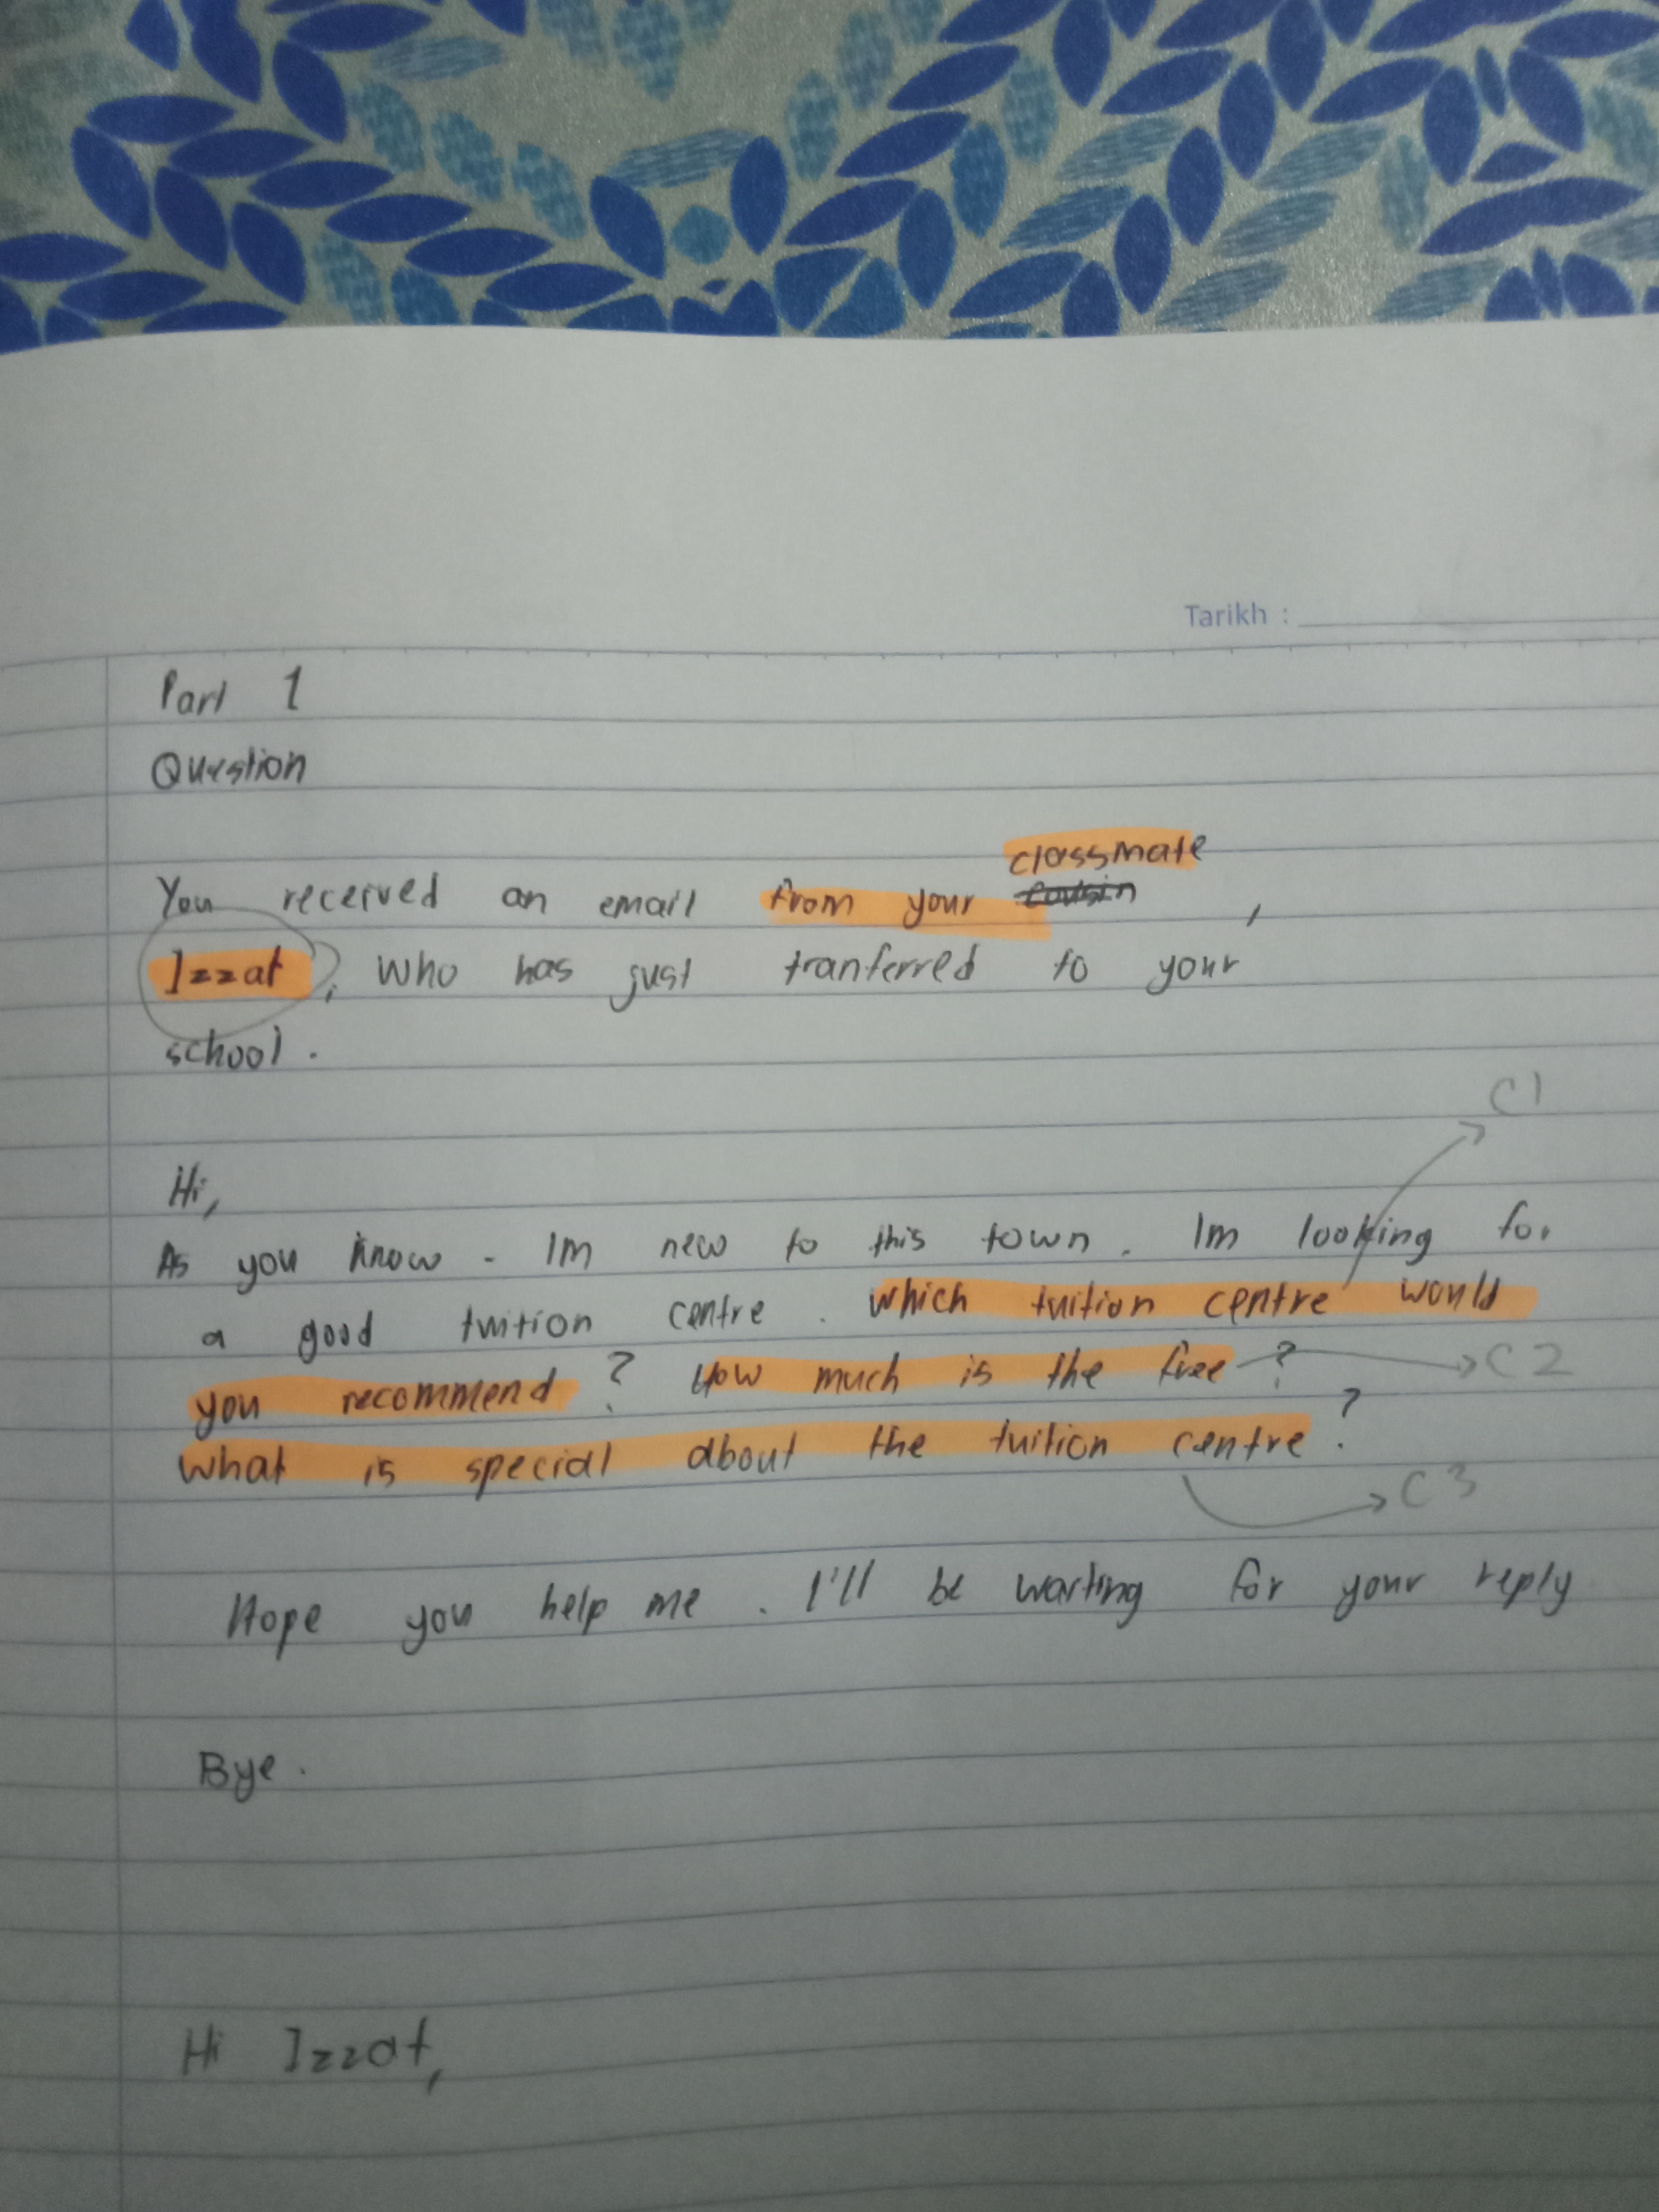 Tarikh :
Part 1
Question
classmate
You received an email from your cousin ,
Izzat, who has just tranferred to your
school.
C1
Hi,
As you know. Im new to this town. Im looking for
a good tuition centre. which tuition centre would
you recommend? How much is the free? C2
what is special about the tuition centre?
C3
Hope you help me. I'll be waiting for your reply
Bye.
Hi Izzat,